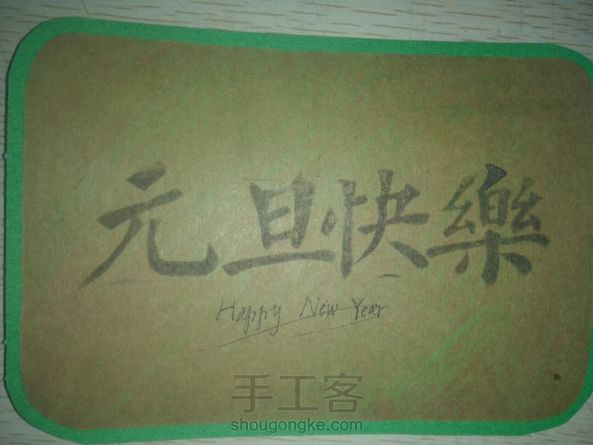 元旦快樂
Happy New Year
手工客
shougongke.com